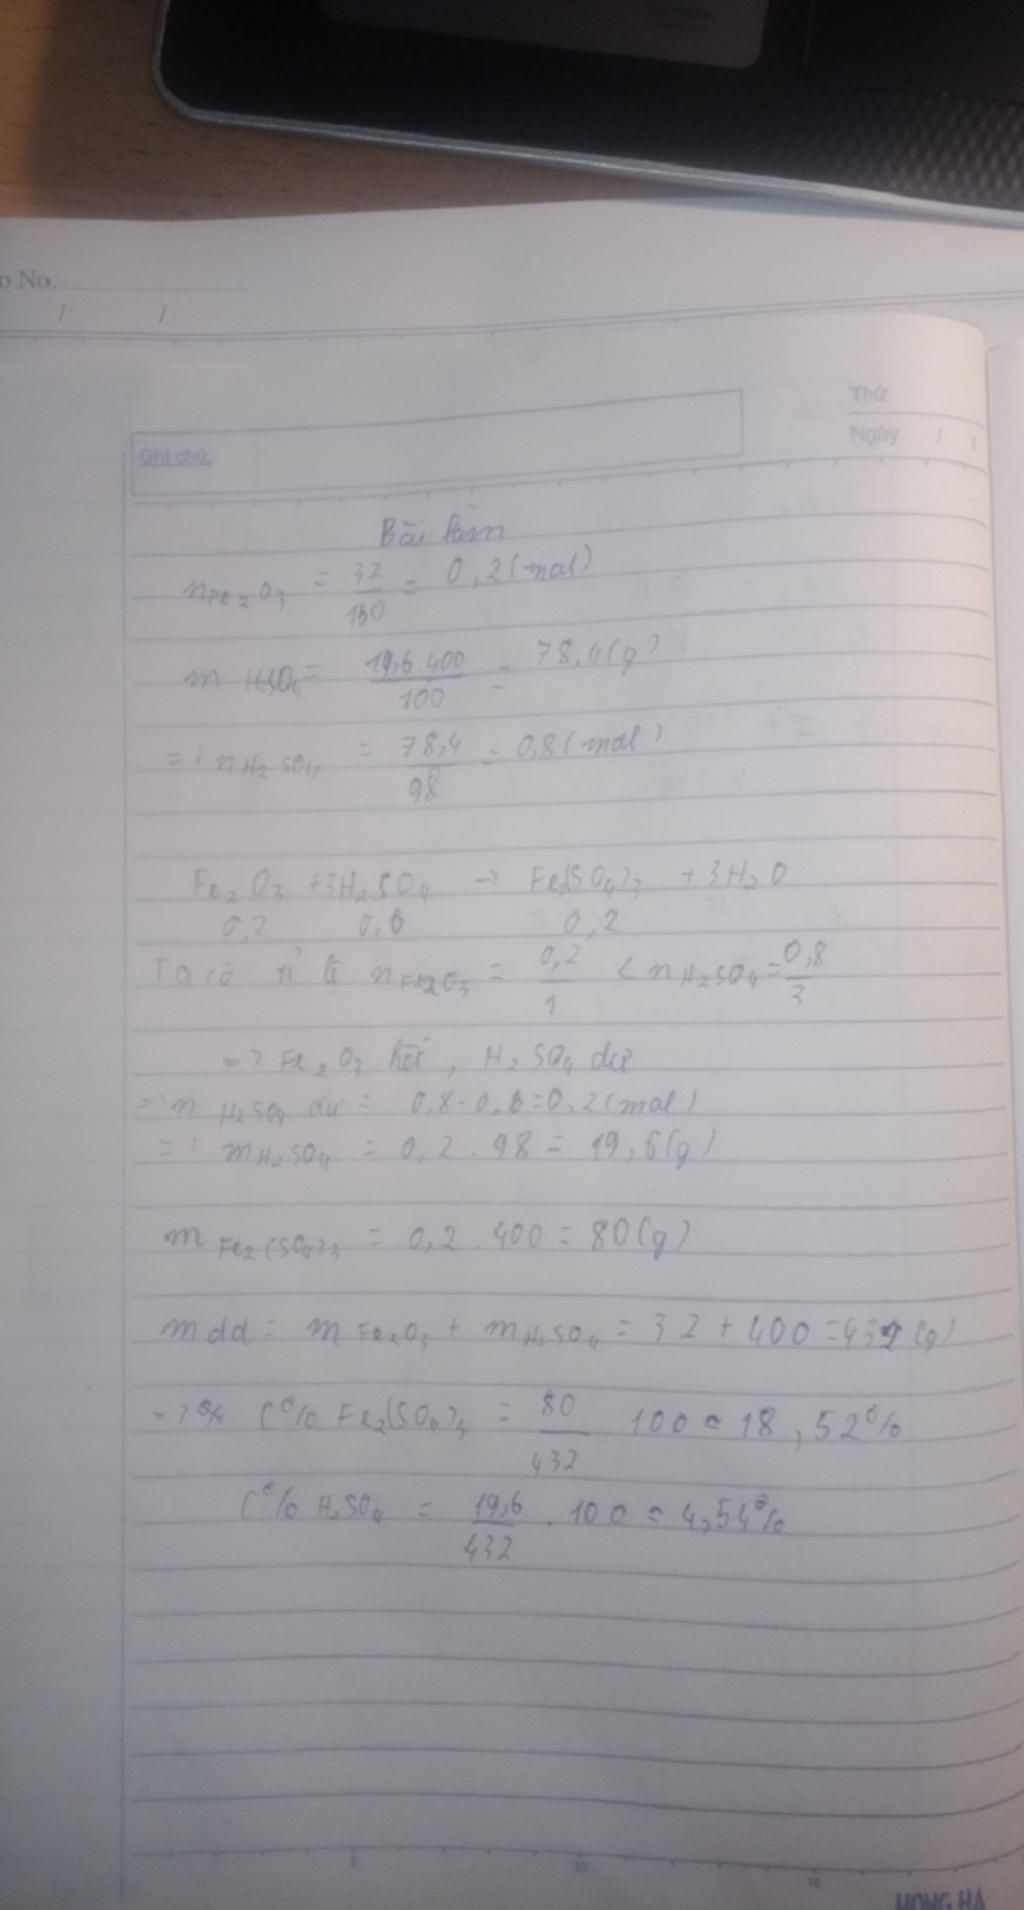 No.
/ /
Thứ
Ngày / /
Ghi chú:
Bài làm
nFe2O3 = 32/160 = 0,2 (mol)
m H2SO4 = 19,6.400/100 = 78,4(g)
=> nH2SO4 = 78,4/98 = 0,8 (mol)
Fe2O3 + 3H2SO4 -> Fe2(SO4)3 + 3H2O
0,2 0,6 0,2
Ta có tỉ lệ nFe2O3 = 0,2/1 < nH2SO4 = 0,8/3
=> Fe2O3 hết, H2SO4 dư
=> n H2SO4 dư = 0,8-0,6=0,2 (mol)
=> mH2SO4 = 0,2.98 = 19,6(g)
m Fe2(SO4)3 = 0,2.400 = 80(g)
mdd = m Fe2O3 + m H2SO4 = 32 + 400 = 432 (g)
=> C% Fe2(SO4)3 = 80/432 100 = 18,52%
C% H2SO4 = 19,6/432 . 100 = 4,54%
5 10 15
HONG HA